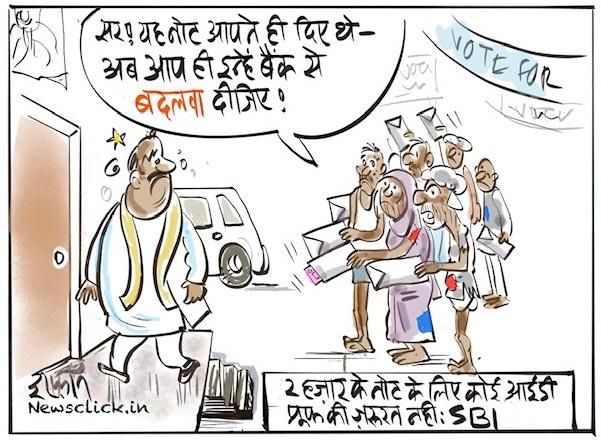 सर! यह नोट आपने ही दिए थे-
अब आप ही इन्हें बैंक से
बदलवा दीजिए!
VOTE FOR
VOTE
इरफ़ान
Newsclick.in
2 हज़ार के नोट के लिए कोई आईडी
प्रूफ की ज़रूरत नहीं: SBI